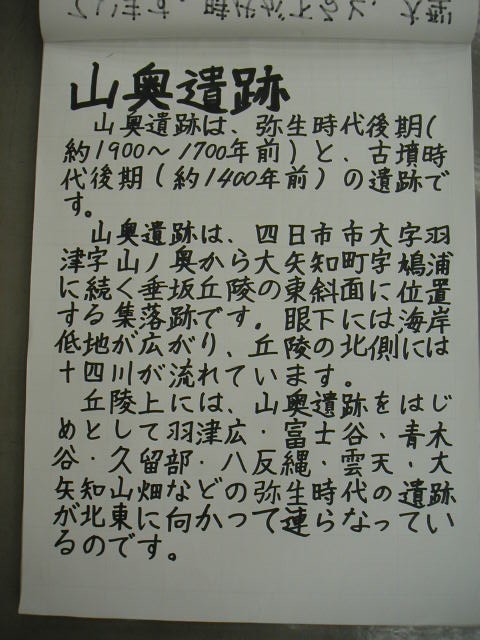 山奥遺跡
山奥遺跡は、弥生時代後期(
約1900～1700年前)と、古墳時
代後期(約1400年前)の遺跡で
す。
山奥遺跡は、四日市市大字羽
津字山ノ奥から大矢知町字鳩浦
に続く垂坂丘陵の東斜面に位置
する集落跡です。眼下には海岸
低地が広がり、丘陵の北側には
十四川が流れています。
丘陵上には、山奥遺跡をはじ
めとして羽津広・富士谷、青木
谷・久留部・八反縄・雲天・大
矢知山畑などの弥生時代の遺跡
が北東に向かって連らなってい
るのです。